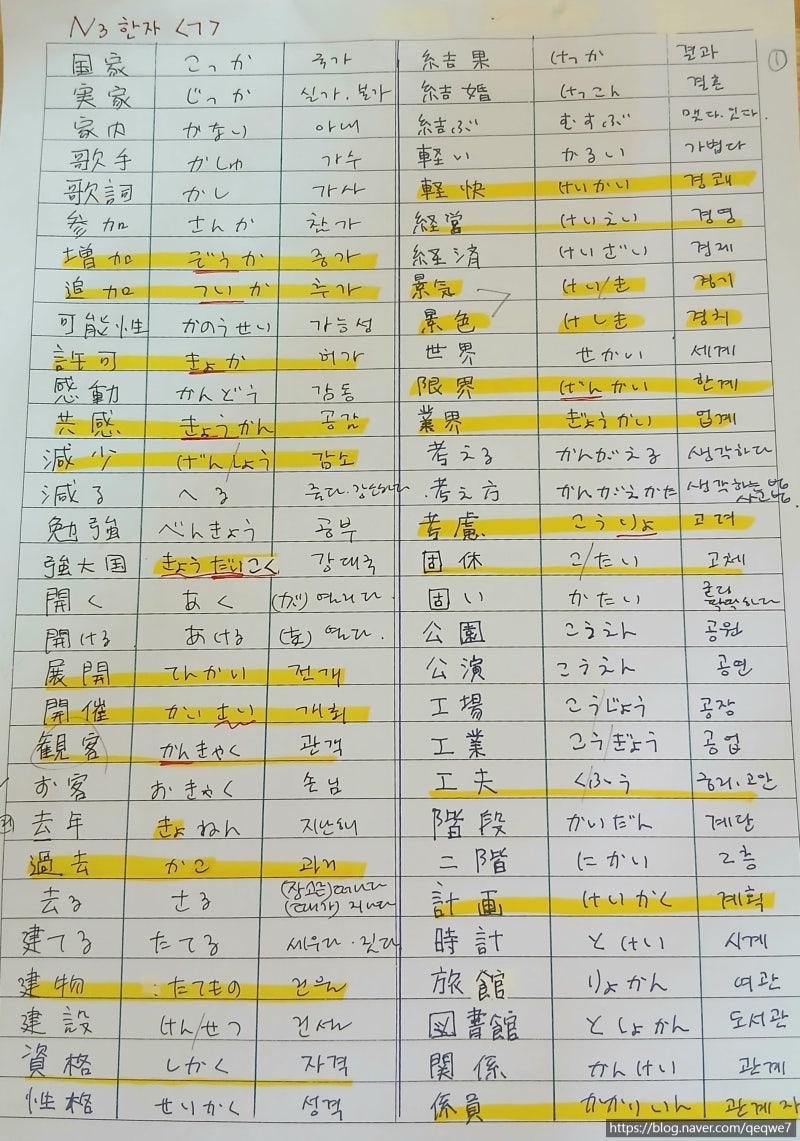 N3 한자 <77
①
国家 こっか 국가
実家 じっか 실가. 본가
家内 かない 아내
歌手 かしゅ 가수
歌詞 かし 가사
参加 さんか 찬가
増加 ぞうか 증가
追加 ついか 추가
可能性 かのうせい 가능성
許可 きょか 허가
感動 かんどう 감동
共感 きょうかん 공감
減少 げん/しょう 감소
減る へる 줄다. 감소하다
勉強 べんきょう 공부
強大国 きょうだいこく 강대국
開く あく (が) 열리다.
開ける あける (を) 열다.
展開 てんかい 전개
開催 かいさい 개최
観客 かんきゃく 관객
お客 おきゃく 손님
去年 きょねん 지난해
過去 かこ 과거
去る さる (장소를)떠나다 (때가) 지나다
建てる たてる 세우다. 짓다
建物 たてもの 건물
建設 けん/せつ 건설
資格 しかく 자격
性格 せいかく 성격
結果 けっか 결과
結婚 けっこん 결혼
結ぶ むすぶ 맺다. 잇다.
軽い かるい 가볍다
軽快 けいかい 경쾌
経営 けいえい 경영
経済 けいざい 경제
景気 けい/き 경기
景色 けしき 경치
世界 せかい 세계
限界 げんかい 한계
業界 ぎょうかい 업계
考える かんがえる 생각하다
考え方 かんがえかた 생각하는 법
考慮 こうりょ 고려
固体 こ/たい 고체
固い かたい 굳다 딱딱하다
公園 こうえん 공원
公演 こうえん 공연
工場 こう/じょう 공장
工業 こう/ぎょう 공업
工夫 くふう 궁리. 고안
階段 かいだん 계단
二階 にかい 2층
計画 けいかく 계획
時計 とけい 시계
旅館 りょかん 여관
図書館 としょかん 도서관
関係 かんけい 관계
係員 かかりいん 관계자
https://blog.naver.com/qeqwe7